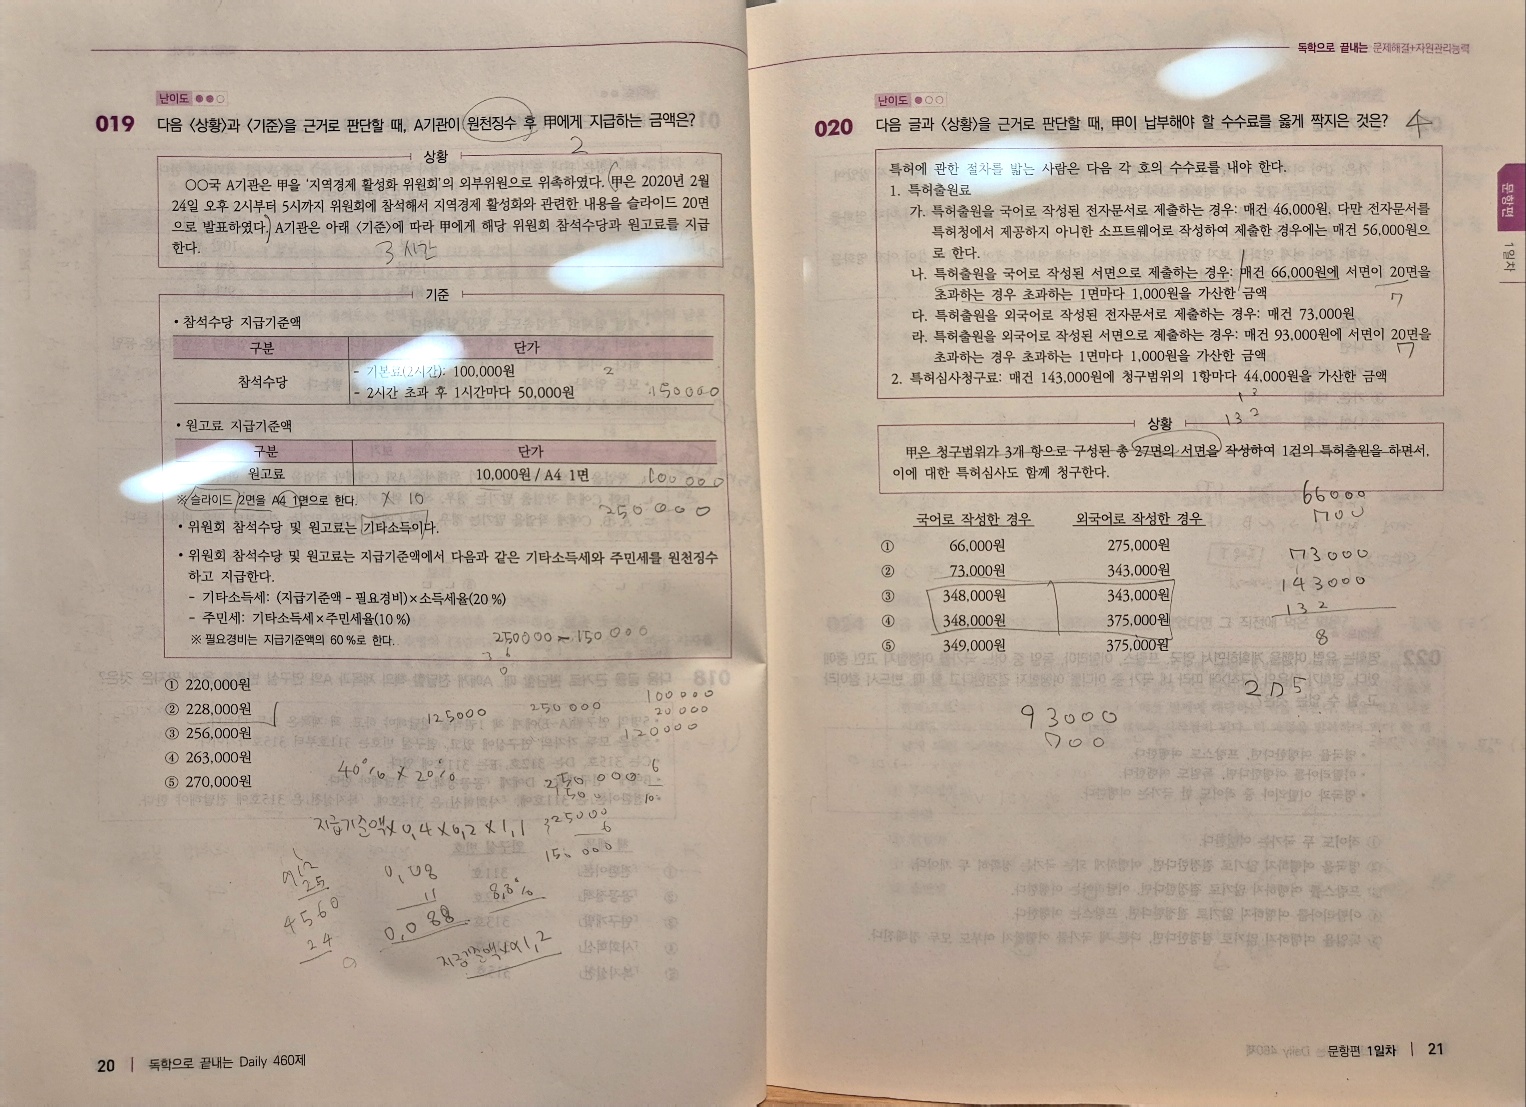 난이도
019 다음 〈상황〉과 〈기준〉을 근거로 판단할 때, A기관이 원천징수 후 甲에게 지급하는 금액은?
2
상황
○○국 A기관은 甲을 '지역경제 활성화 위원회'의 외부위원으로 위촉하였다. 甲은 2020년 2월
24일 오후 2시부터 5시까지 위원회에 참석해서 지역경제 활성화와 관련한 내용을 슬라이드 20면
으로 발표하였다. A기관은 아래 〈기준〉에 따라 甲에게 해당 위원회 참석수당과 원고료를 지급
한다.
3시간
기준
• 참석수당 지급기준액
구분 단가
참석수당
- 기본료(2시간): 100,000원
- 2시간 초과 후 1시간마다 50,000원
2
150000
• 원고료 지급기준액
구분 단가
원고료 10,000원 / A4 1면
100000
※ 슬라이드 2면을 A4 1면으로 한다.
× 10
250000
• 위원회 참석수당 및 원고료는 기타소득이다.
• 위원회 참석수당 및 원고료는 지급기준액에서 다음과 같은 기타소득세와 주민세를 원천징수
하고 지급한다.
- 기타소득세: (지급기준액 - 필요경비)×소득세율(20 %)
- 주민세: 기타소득세×주민세율(10 %)
※ 필요경비는 지급기준액의 60 %로 한다.
250000 - 150000
① 220,000원
② 228,000원
③ 256,000원
④ 263,000원
⑤ 270,000원
100000
20000
120000
125000 250000
40% × 20%
지급기준액×0,4×0,2×1,1
25000
6
0,08
11
0,088
8,8%
91,2
25
4560
지급기준액×91,2
20 | 독학으로 끝내는 Daily 460제
독학으로 끝내는 문제해결+자원관리능력
난이도
020 다음 글과 〈상황〉을 근거로 판단할 때, 甲이 납부해야 할 수수료를 옳게 짝지은 것은?
4
특허에 관한 절차를 밟는 사람은 다음 각 호의 수수료를 내야 한다.
1. 특허출원료
가. 특허출원을 국어로 작성된 전자문서로 제출하는 경우: 매건 46,000원. 다만 전자문서를
특허청에서 제공하지 아니한 소프트웨어로 작성하여 제출한 경우에는 매건 56,000원으
로 한다.
나. 특허출원을 국어로 작성된 서면으로 제출하는 경우: 매건 66,000원에 서면이 20면을
초과하는 경우 초과하는 1면마다 1,000원을 가산한 금액
7
다. 특허출원을 외국어로 작성된 전자문서로 제출하는 경우: 매건 73,000원
라. 특허출원을 외국어로 작성된 서면으로 제출하는 경우: 매건 93,000원에 서면이 20면을
초과하는 경우 초과하는 1면마다 1,000원을 가산한 금액
7
2. 특허심사청구료: 매건 143,000원에 청구범위의 1항마다 44,000원을 가산한 금액
132
상황
甲은 청구범위가 3개 항으로 구성된 총 27면의 서면을 작성하여 1건의 특허출원을 하면서,
이에 대한 특허심사도 함께 청구한다.
국어로 작성한 경우 외국어로 작성한 경우
① 66,000원 275,000원
② 73,000원 343,000원
③ 348,000원 343,000원
④ 348,000원 375,000원
⑤ 349,000원 375,000원
66000
700
73000
143000
132
8
275
93000
700
문항편
1일차
문항편 1일차 | 21